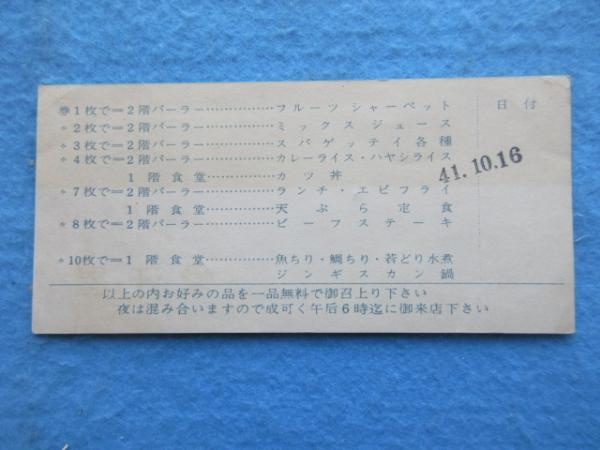 券1枚で=2階パーラー……………フルーツシャーベット
〃2枚で=2階パーラー……………ミックスジュース
〃3枚で=2階パーラー……………スパゲッテイ各種
〃4枚で=2階パーラー……………カレーライス・ハヤシライス
1階食堂……………カツ丼
〃7枚で=2階パーラー……………ランチ・エビフライ
1階食堂……………天ぷら定食
〃8枚で=2階パーラー……………ビーフステーキ
〃10枚で=1階食堂……………魚ちり・鯛ちり・若どり水煮
ジンギスカン鍋
以上の内お好みの品を一品無料で御召上り下さい
夜は混み合いますので成可く午后6時迄に御来店下さい
日付
41.10.16